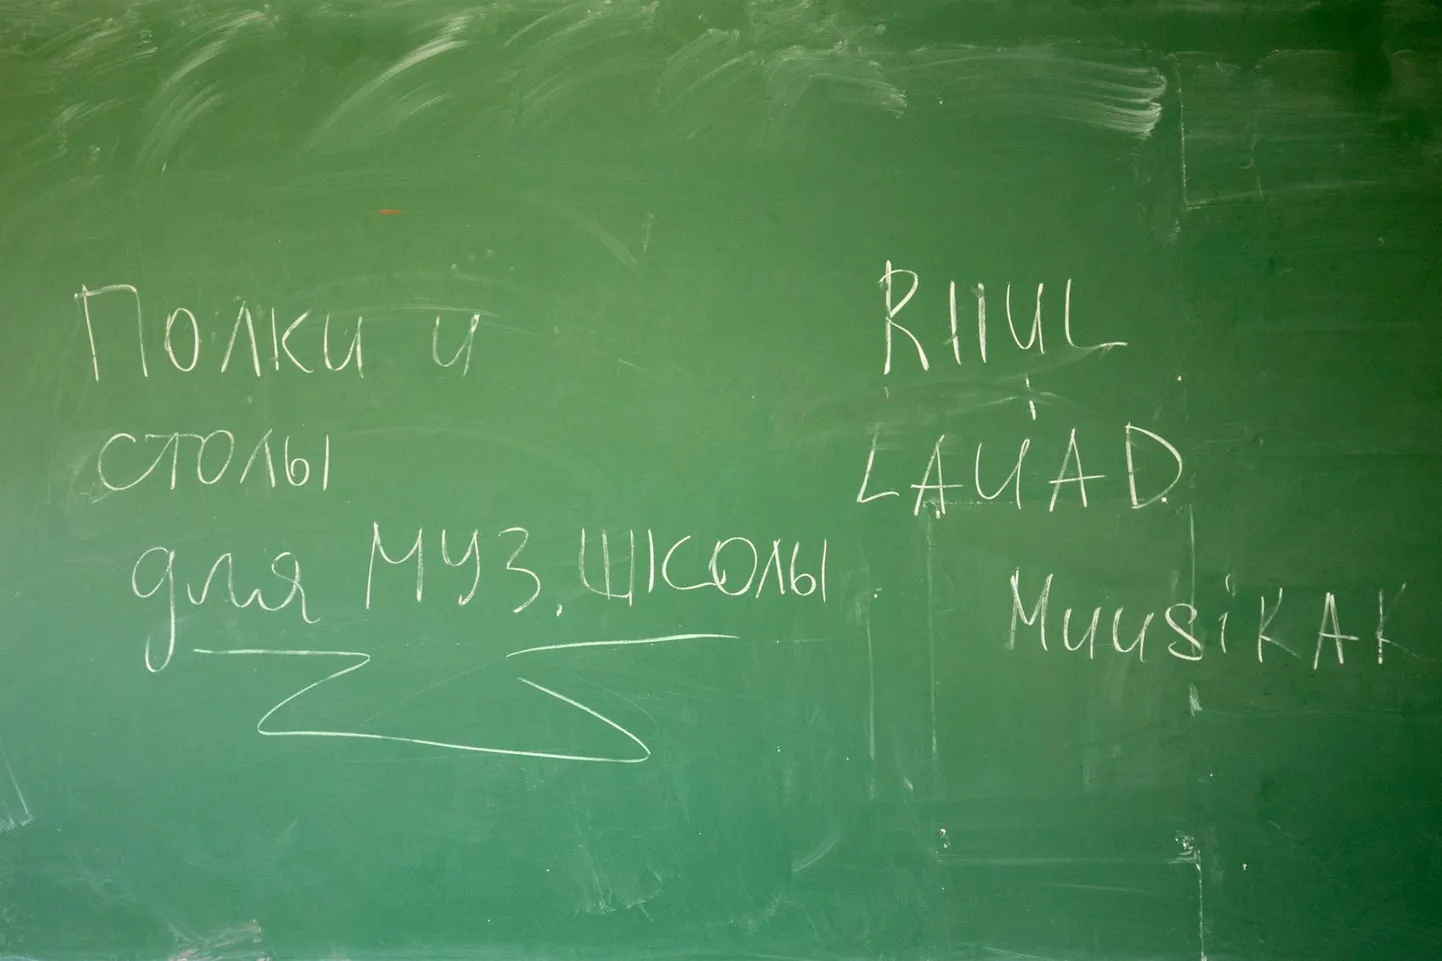 Полки и
столы
для муз. школы
RIIUL
+
LAUAD
MUUSiKAK